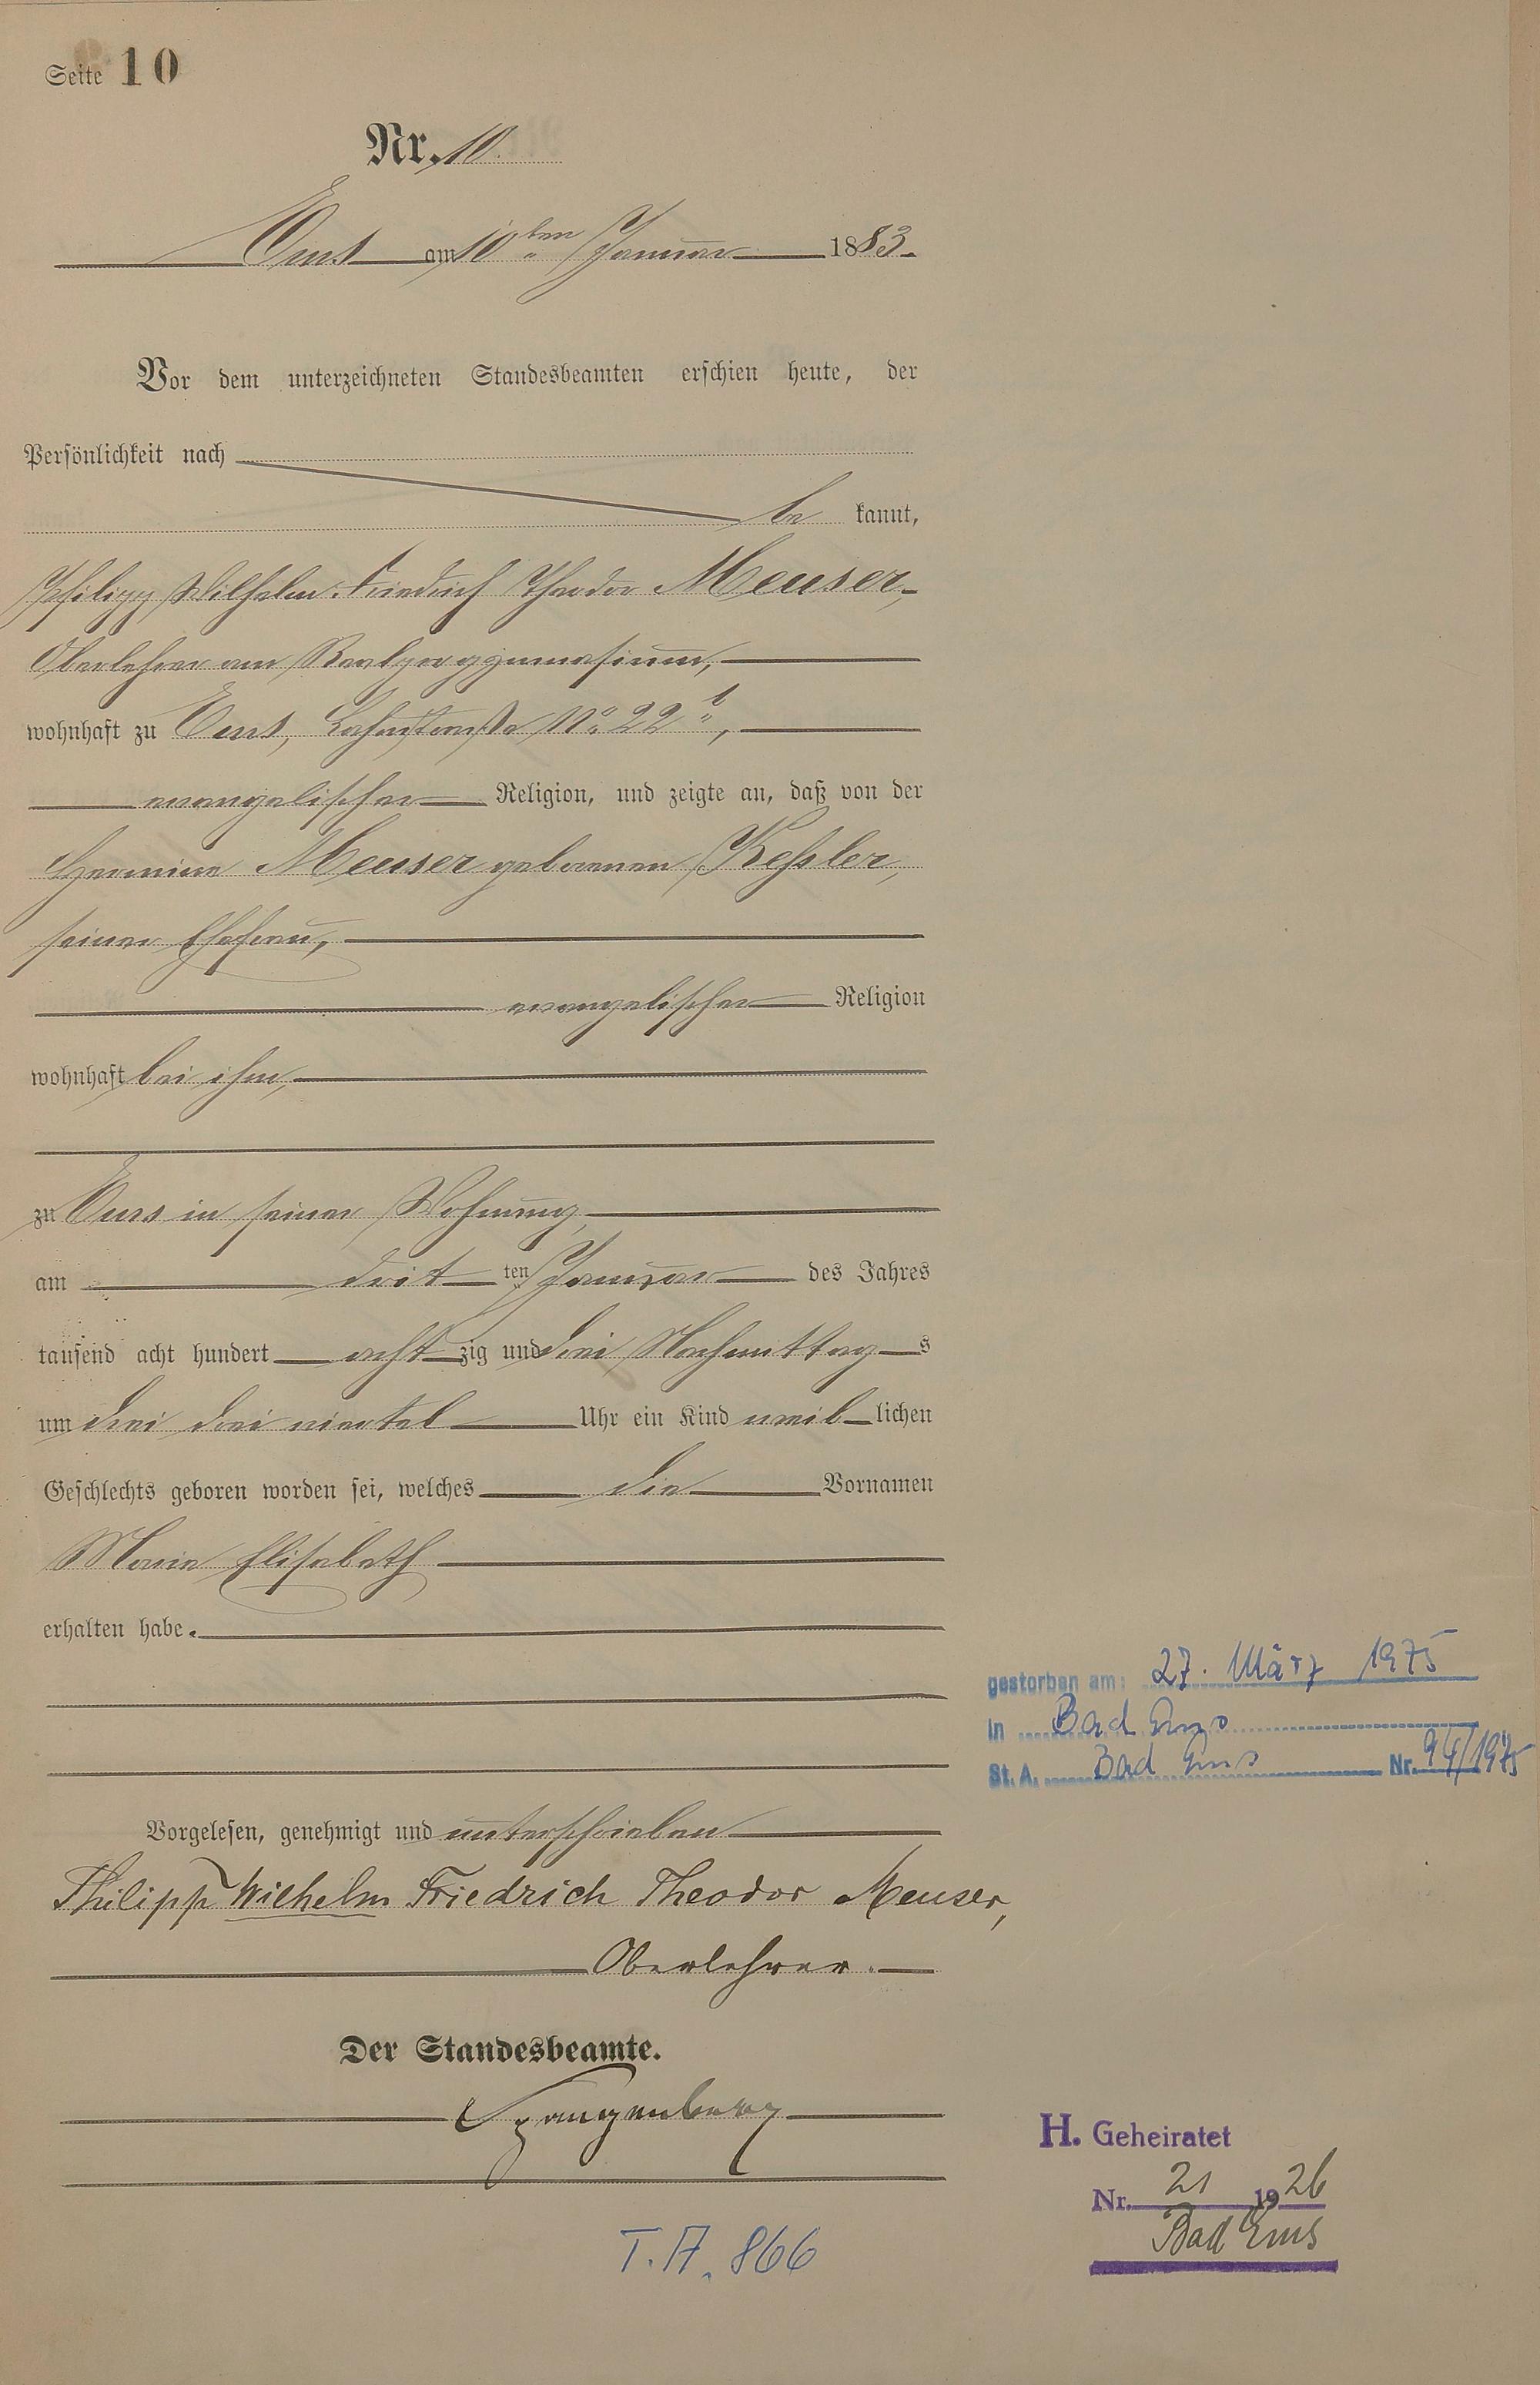 Seite 10
Nr. 10.
Ems am 10ten Januar 1883.
Vor dem unterzeichneten Standesbeamten erschien heute, der
Persönlichkeit nach
be kannt,
Philipp Wilhelm Friedrich Theodor Meuser,
Oberlehrer am Realprogymnasium,
wohnhaft zu Ems, Lahnstraße No 22
evangelischer Religion, und zeigte an, daß von der
Hermine Meuser geborenen Keßler,
seiner Ehefrau,
evangelischer Religion
wohnhaft bei ihm,
zu Ems in seiner Wohnung,
am drit ten Januar des Jahres
tausend acht hundert acht zig und drei Nachmittag s
um drei drei viertel Uhr ein Kind weib lichen
Geschlechts geboren worden sei, welches die Vornamen
Marie Elisabeth
erhalten habe.
gestorben am: 27. März 1975
in Bad Ems
St. A. Bad Ems Nr. 94/1975
Vorgelesen, genehmigt und unterschrieben
Philipp Wilhelm Friedrich Theodor Meuser,
Oberlehrer.
Der Standesbeamte.
Spangenberg
H. Geheiratet
Nr. 21 1926
Bad Ems
T. A. 866